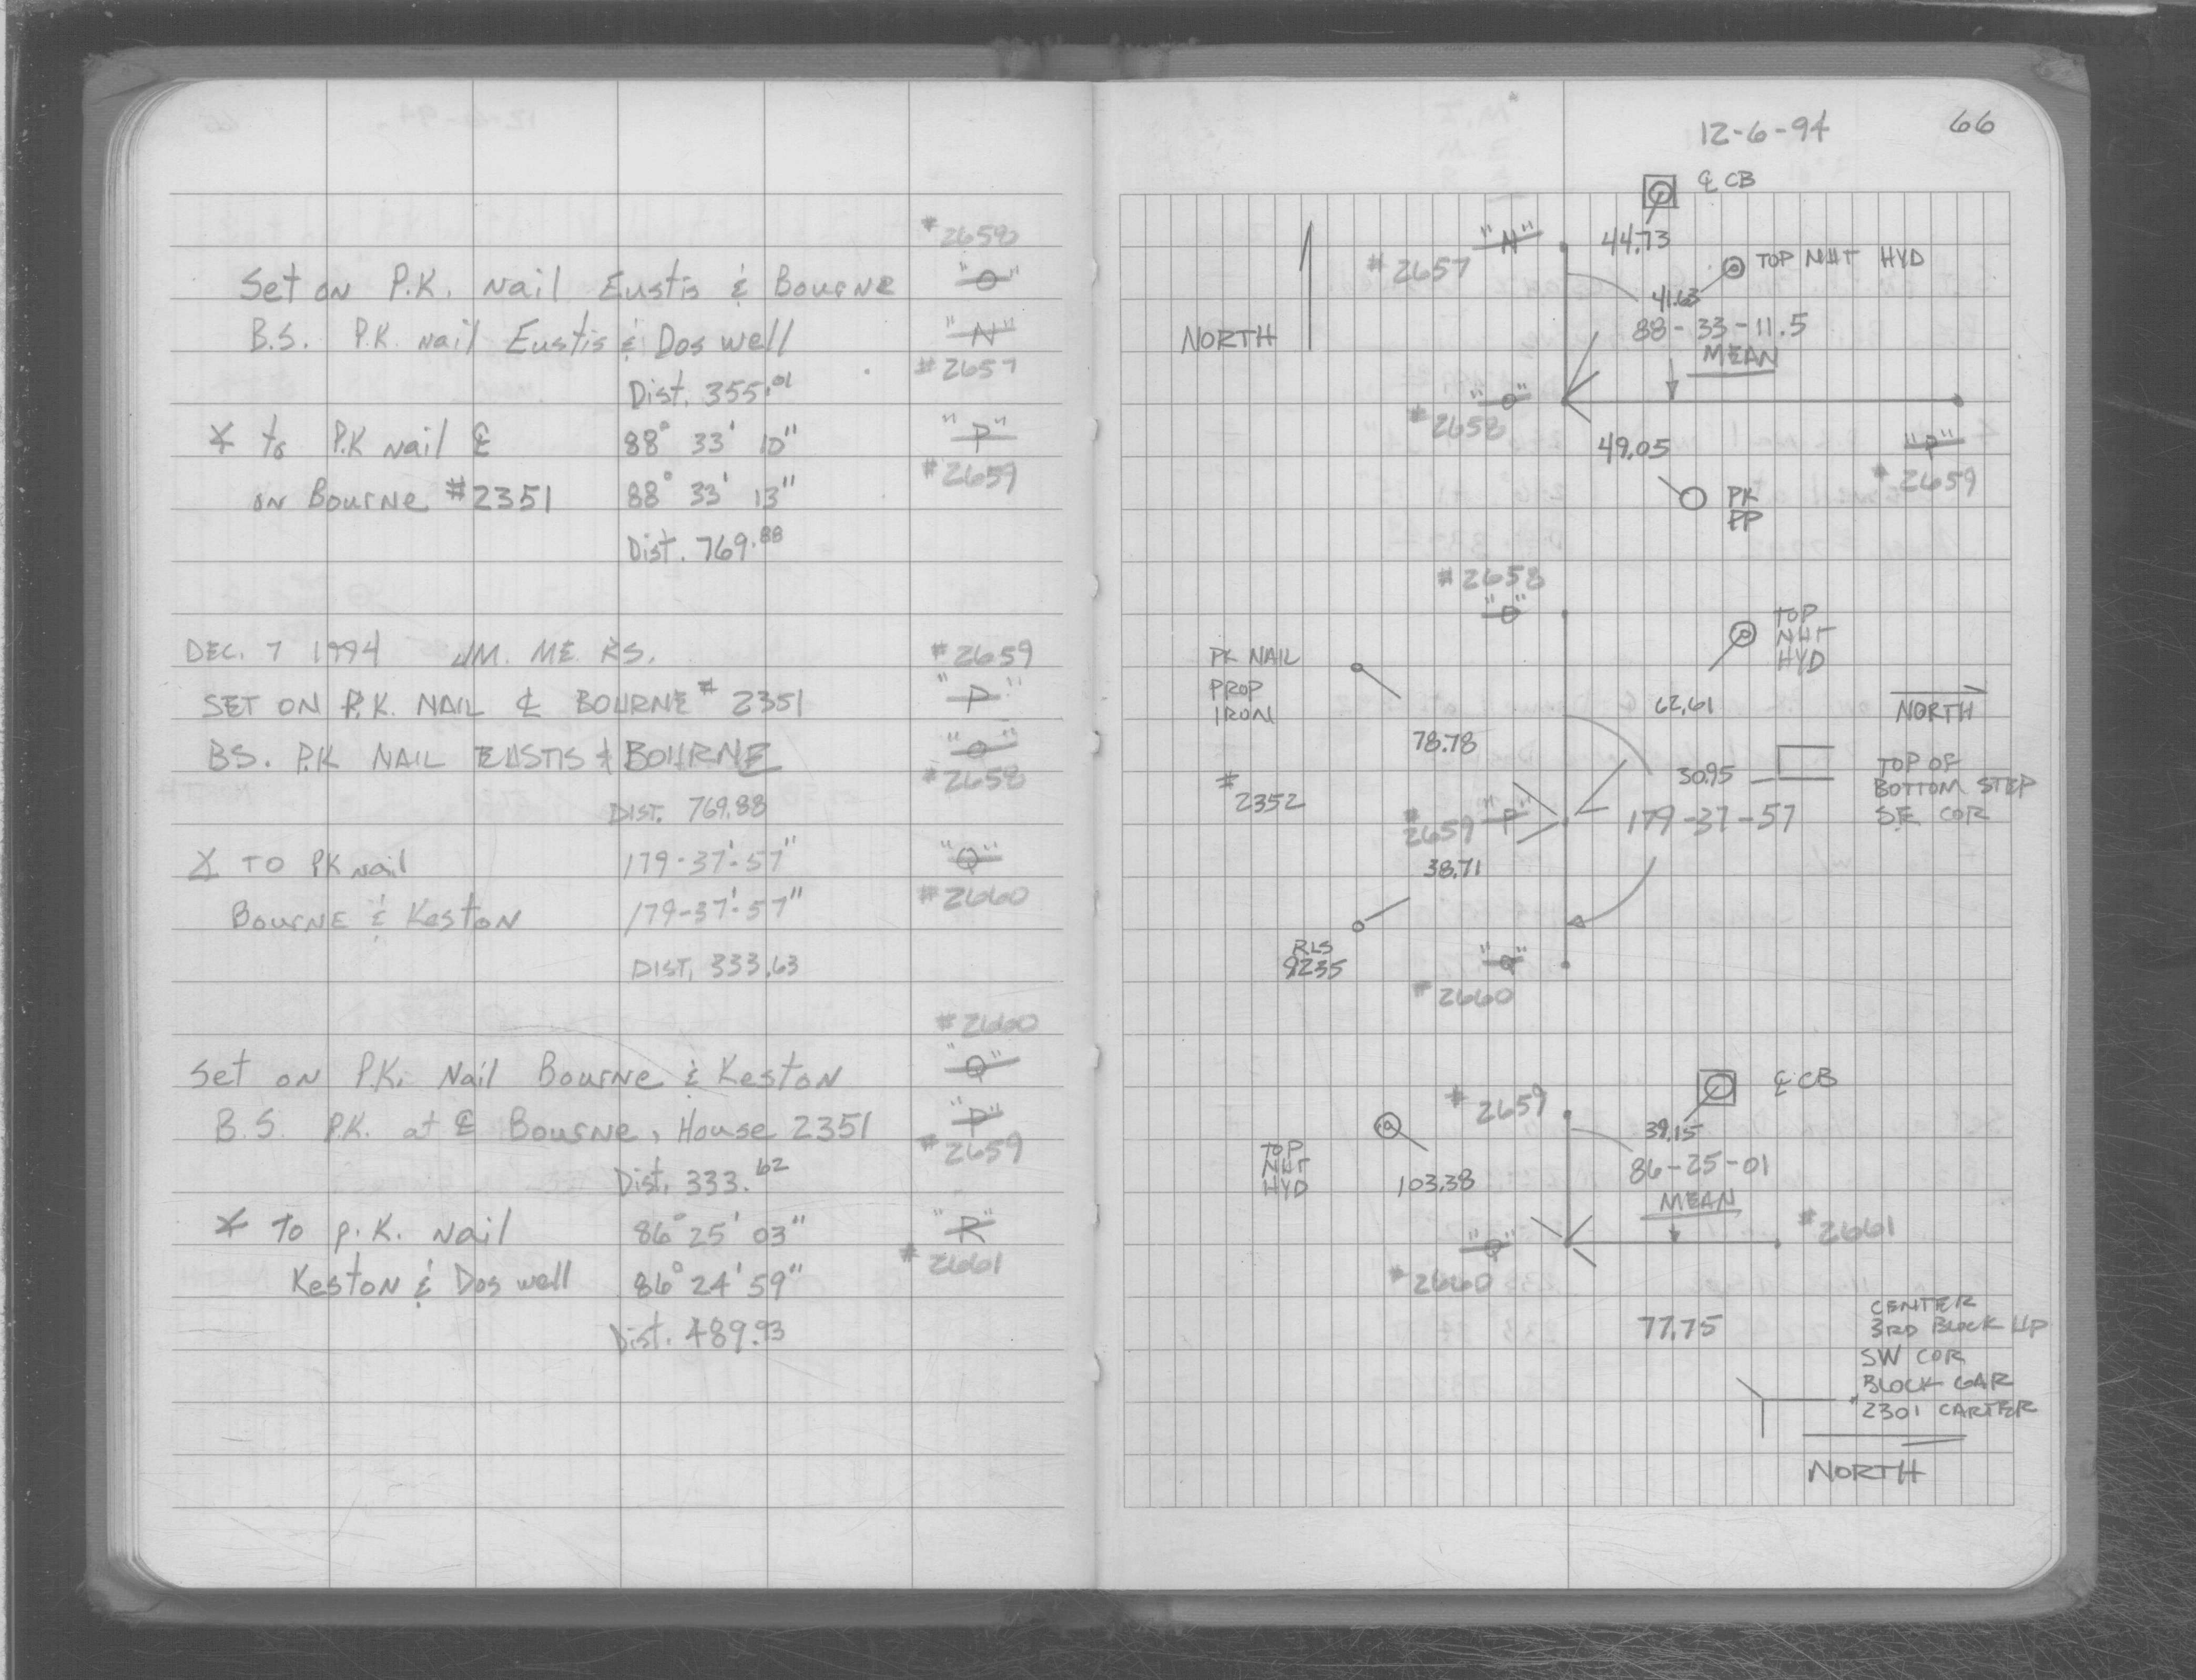 #2658
Set on P.K. Nail Eustis & Bourne "O"
B.S. P.K. Nail Eustis & Doswell "N"
#2657
Dist. 355.01
∡ to P.K Nail ℄ 88° 33' 10" "P"
#2659
on Bourne #2351 88° 33' 13"
Dist. 769.88
DEC. 7 1994 JM. ME. RS. #2659
SET ON P.K. NAIL ℄ BOURNE # 2351 "P"
BS. P.K NAIL EUSTIS & BOURNE "O"
#2658
DIST. 769.88
∡ TO PK nail 179-37'-57" "Q"
#2660
BOURNE & KESTON 179-37'-57"
DIST. 333.63
#2660
Set on P.K. Nail Bourne & Keston "Q"
B.S. P.K. at ℄ Bourne, House 2351 "P"
#2659
Dist. 333.62
∡ To P.K. Nail 86° 25' 03" "R"
#2661
Keston & Doswell 86° 24' 59"
Dist. 489.93
12-6-94 66
℄ CB
"N" 44.73
#2657
TOP NUT HYD
41.63
NORTH
88-33-11.5
MEAN
"O"
#2658
49.05
"P"
#2659
PK
PP
#2658
"O"
TOP
NUT
HYD
PK NAIL
PROP
IRON
62.61
NORTH
78.78
#
2352
30.95
TOP OF
BOTTOM STEP
SE COR
#
2659 "P"
179-37-57
38.71
RLS
9235
"Q"
#2660
℄ CB
#2659
39.15
TOP
NUT
HYD
103.38
86-25-01
MEAN
#2661
"Q"
#2660
77.75
CENTER
3RD BLOCK UP
SW COR
BLOCK GAR
#2301 CARTER
NORTH